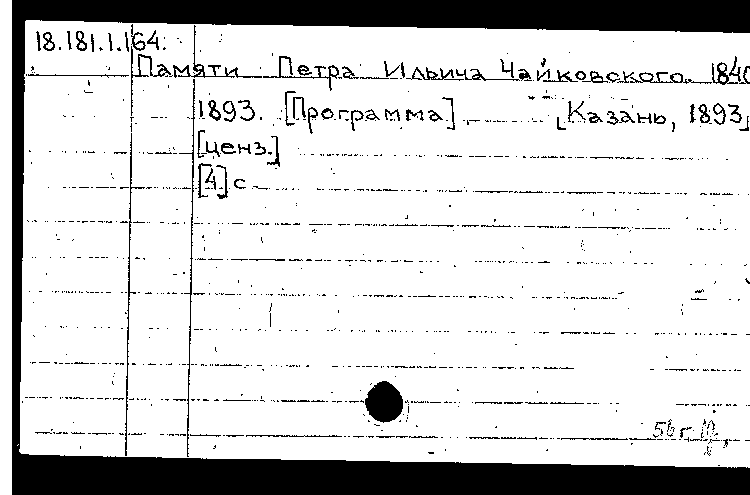 18.181.1.164.
Памяти Петра Ильича Чайковского. 1840
1893. [Программа]. [Казань, 1893]
[ценз.]
[4] с.
56 г.